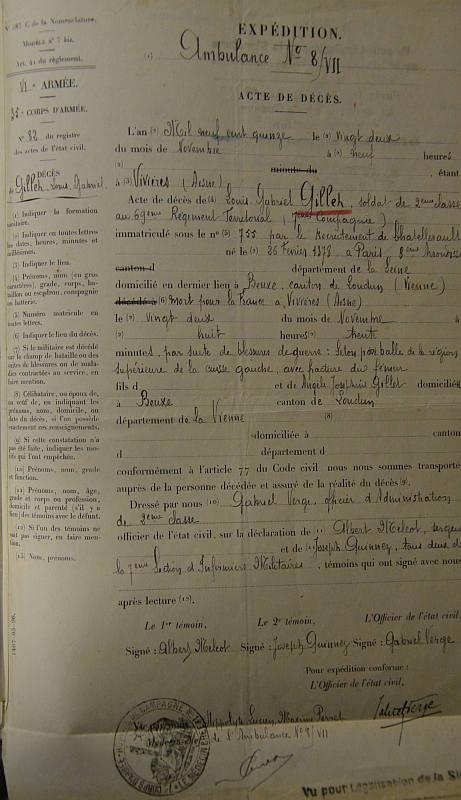 N° 187 C de la Nomenclature.
Modèle n° 7 bis.
Art. 41 du règlement.
VIe ARMÉE.
35e CORPS D'ARMÉE.
N° 82 du registre
des actes de l'état civil.
DÉCÈS
de Gilleh, Louis, Gabriel
(1) Indiquer la formation
sanitaire.
(2) Indiquer en toutes lettres
les dates, heures, minutes et
millésimes.
(3) Indiquer le lieu.
(4) Prénoms, nom (en gros
caractères), grade, corps, bataillon
ou escadron, compagnie
ou batterie.
(5) Numéro matricule en
toutes lettres.
(6) Indiquer le lieu du décès.
(7) Si le militaire est décédé
sur le champ de bataille ou des
suites de blessures ou de maladies
contractées au service, en
faire mention.
(8) Célibataire, ou époux de,
ou veuf de, en indiquant les
prénoms, nom, domicile, ou
date du décès, si l'on possède
exactement ces renseignements.
(9) Si cette constatation n'a
pas été faite, indiquer les motifs
qui l'ont empêchée.
(10) Prénoms, nom, grade
et fonction.
(11) Prénoms, nom, âge,
grade et corps ou profession,
domicile et parenté (s'il y a
lieu) des témoins avec le défunt.
(12) Si l'un des témoins ne
sait pas signer, en faire mention.
(13) Nom, prénoms.
EXPÉDITION.
(1) Ambulance N° 8/VII
ACTE DE DÉCÈS.
L'an (2) Mil neuf cent quinze le (2) Vingt deux
du mois de Novembre à (2) neuf heures
(2) minutes du , étant
à (3) Vivières (Aisne)
Acte de décès de (4) Louis Gabriel Gilleh, soldat de 2eme classe
au 69eme Régiment Territorial (7eme Compagnie)
immatriculé sous le n° (5) 755 par le Recrutement de Chatellerault
né le 26 Février 1878 à Paris, 8eme Arrondisst
canton d département de la Seine
domicilié en dernier lieu à Beuxe, canton de Loudun (Vienne)
décédé à (6) Mort pour la France à Vivières (Aisne)
le Vingt deux du mois de Novembre à
(2) huit heures (2) trente
minutes, par suite de blessures de guerre: par balle de la région
supérieure de la cuisse gauche, avec fracture du fémur
fils d et de Angèle Joséphine Gillet domiciliés
à Beuxe canton de Loudun
département de la Vienne (8)
domiciliée à canton
d département d
conformément à l'article 77 du Code civil nous nous sommes transporté
auprès de la personne décédée et assuré de la réalité du décès (9).
Dressé par nous (10) Gabriel Verge officier d'Administration
de 2eme classe
officier de l'état civil, sur la déclaration de (11) Albert Melcot, sergent
et de (11) Joseph Quinney, tous deux de
la 7eme Section d'Infirmiers Militaires, témoins qui ont signé avec nous
après lecture (12).
Le 1er témoin, Le 2e témoin, L'Officier de l'état civil,
Signé : Albert Melcot Signé : Joseph Quinney Signé : Gabriel Verge
Pour expédition conforme :
L'Officier de l'état civil,
Hippolyte Lucien Maxime
de l'Ambulance N° 8/VII
Vu pour Légalisation de la Si